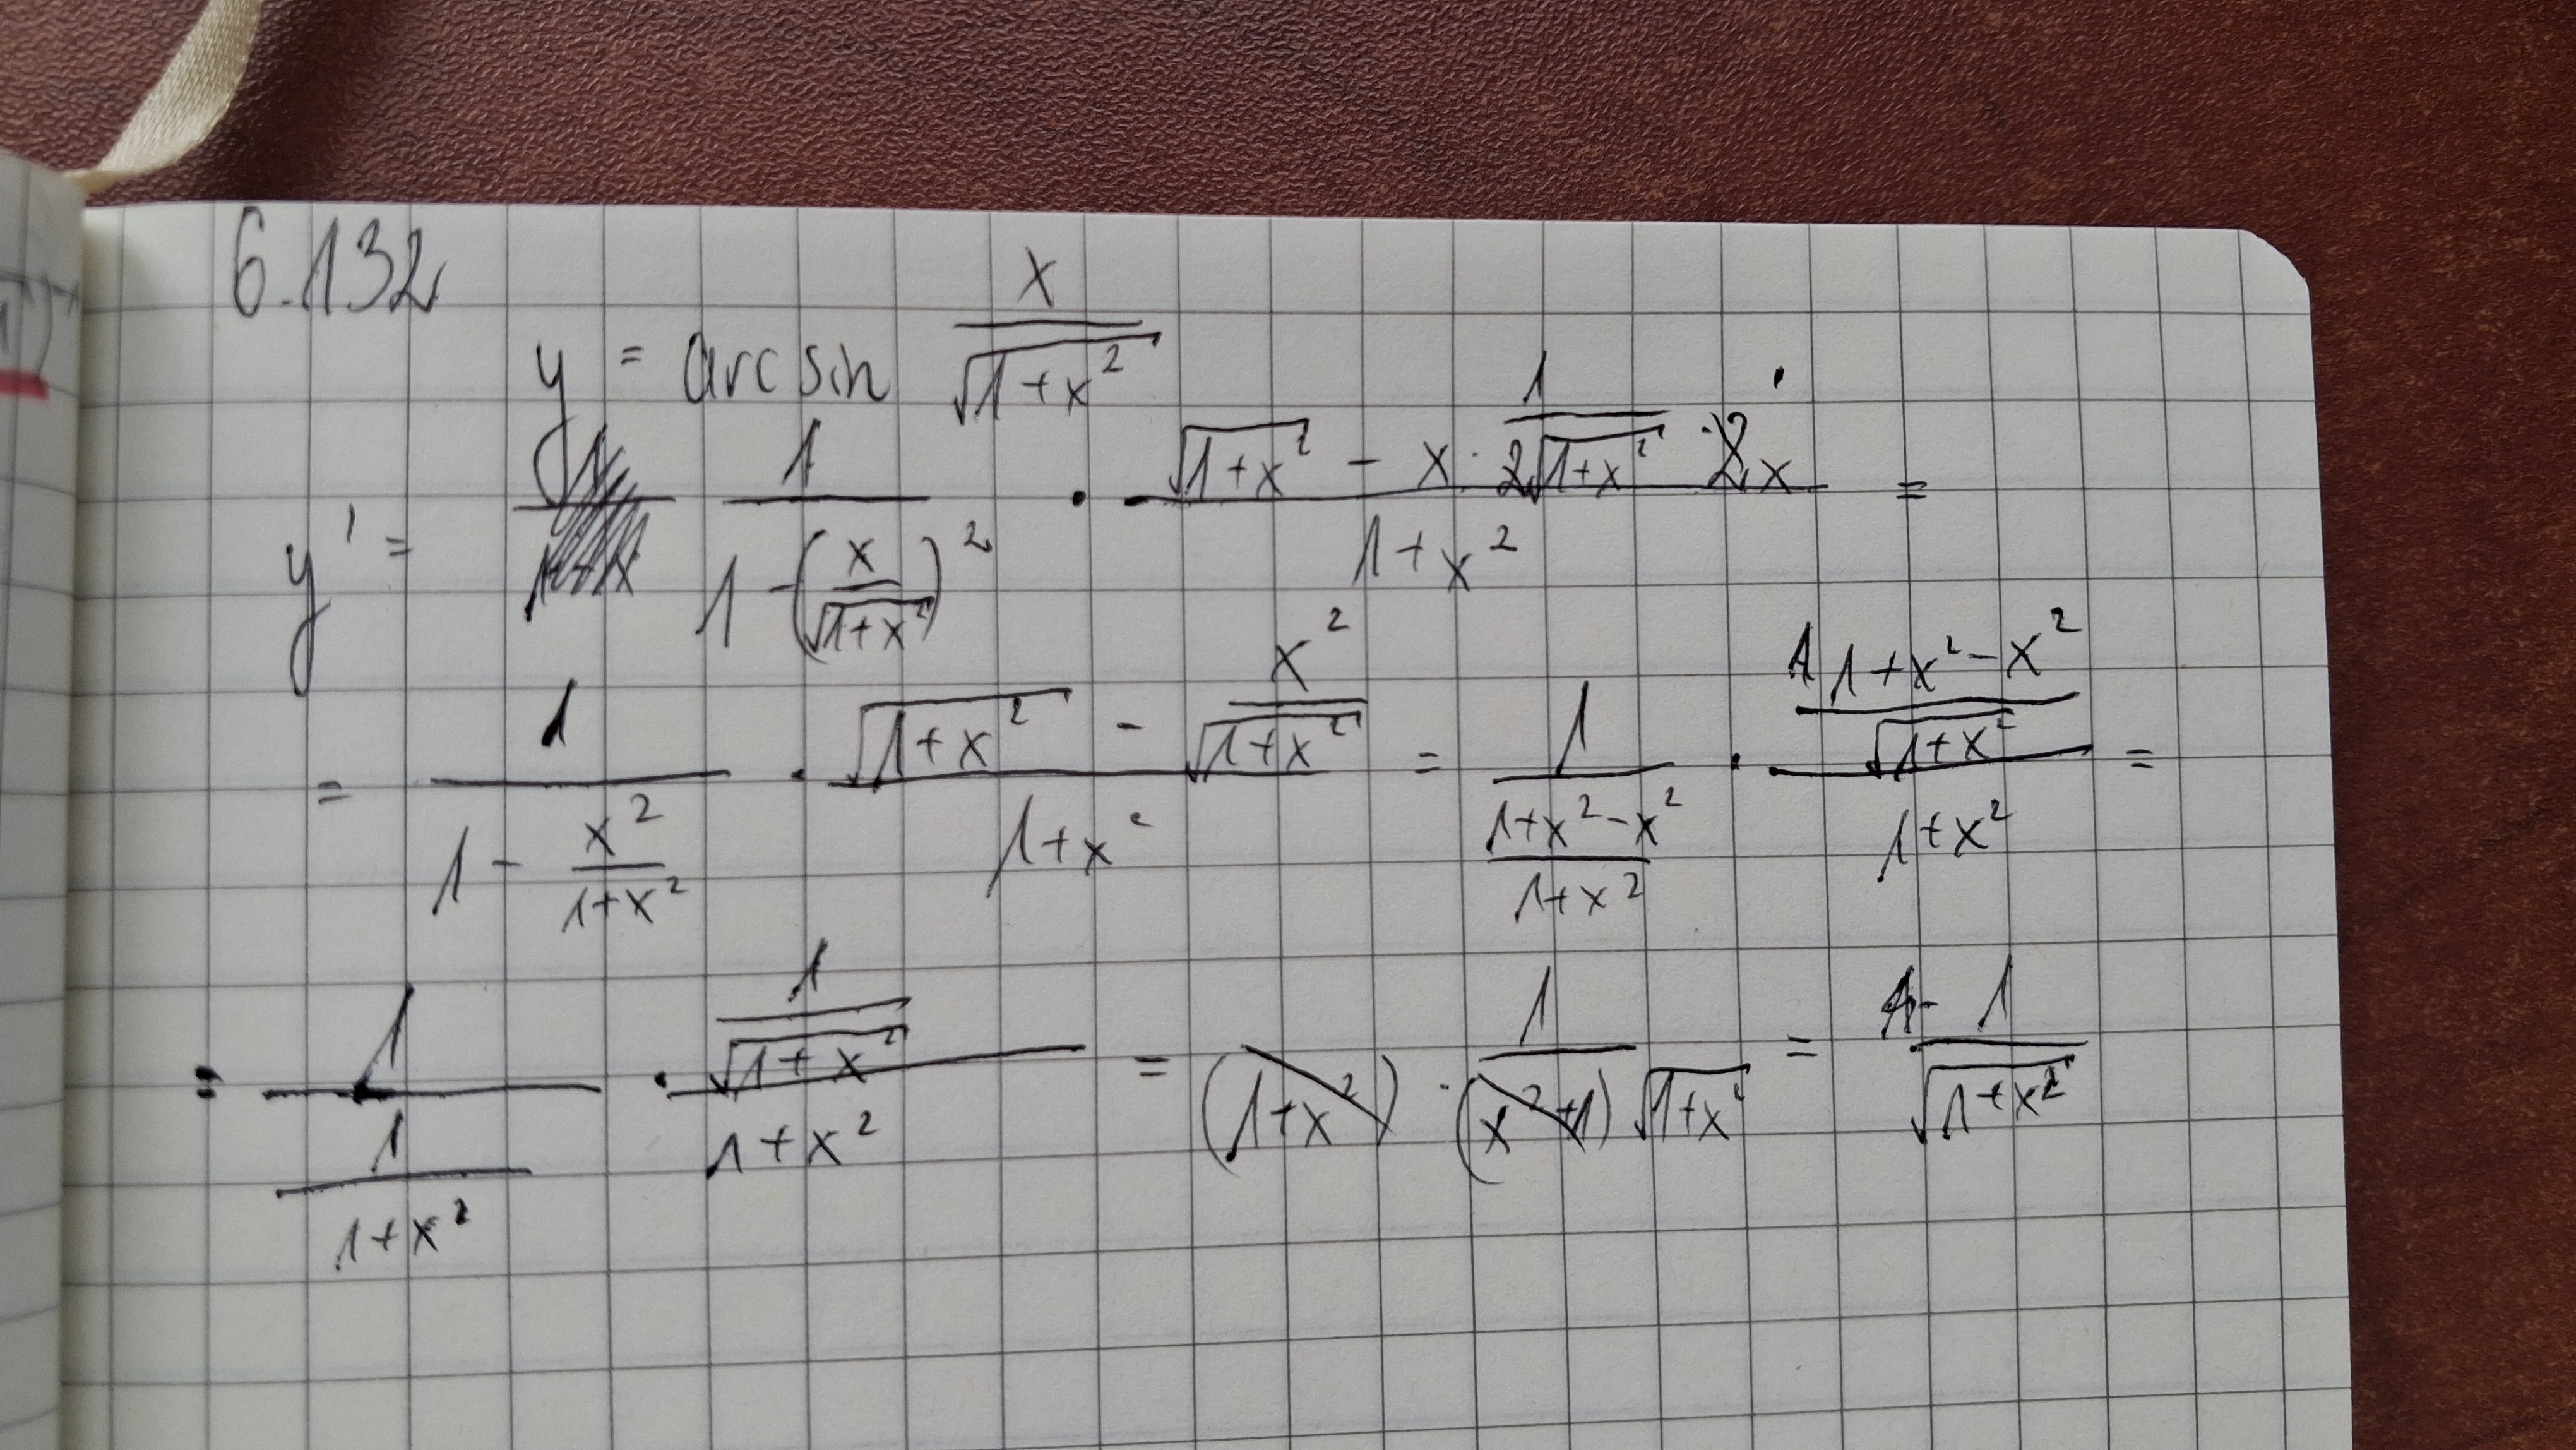 6.132
y = arcsin x/√(1+x²)
y' = 1/(1-(x/√(1+x²))²) · (√(1+x²) - x · 1/(2√(1+x²)) · 2x)/(1+x²) =
= 1/(1 - x²/(1+x²)) · (√(1+x²) - x²/√(1+x²))/(1+x²) = 1/((1+x²-x²)/(1+x²)) · ((1+x²-x²)/√(1+x²))/(1+x²) =
= 1/(1/(1+x²)) · (1/√(1+x²))/(1+x²) = (1+x²) · 1/((x²+1)√(1+x²)) = 1/√(1+x²)